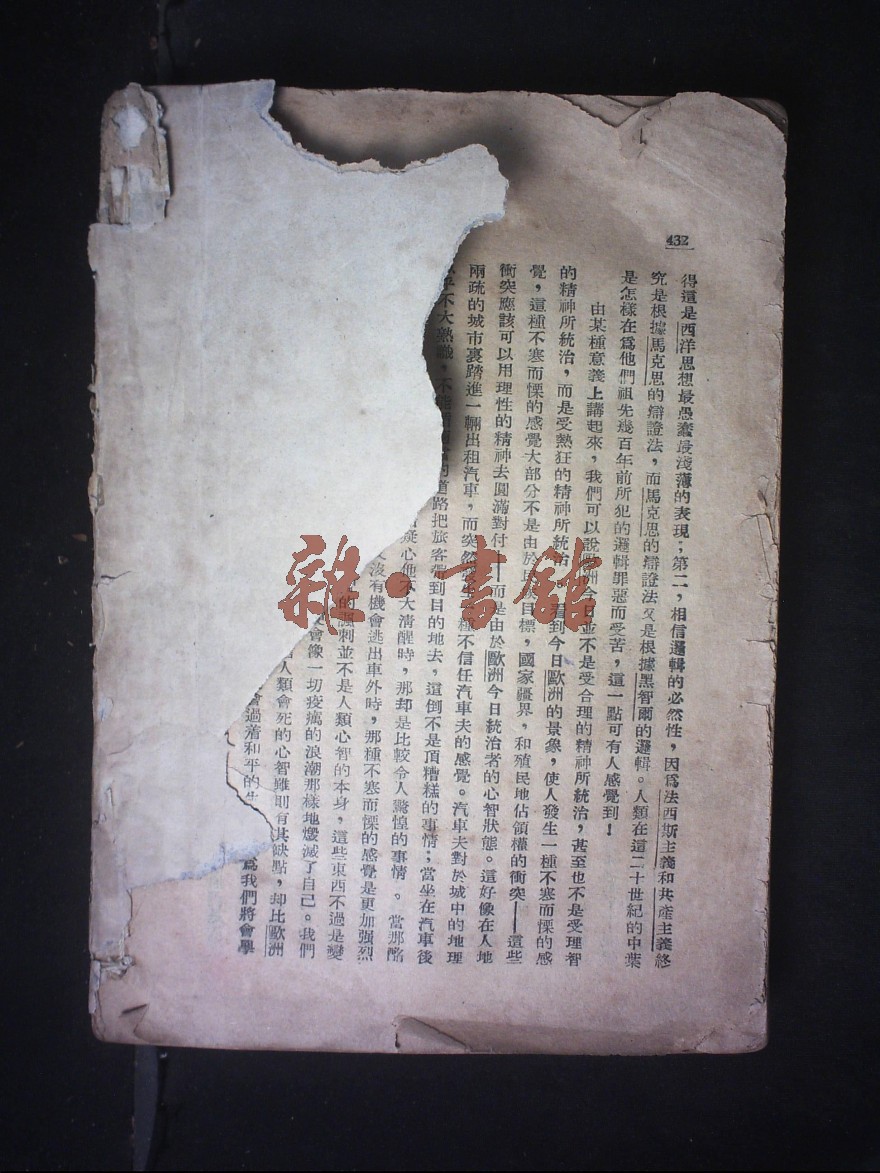 432
得這是西洋思想最愚蠢最淺薄的表現；第二，相信邏輯的必然性，因爲法西斯主義和共產主義終
究是根據馬克思的辯證法，而馬克思的辯證法又是根據黑智爾的邏輯。人類在這二十世紀的中葉
是怎樣在爲他們祖先幾百年前所犯的邏輯罪惡而受苦，這一點可有人感覺到！
由某種意義上講起來，我們可以說歐洲今日並不是受合理的精神所統治，甚至也不是受理智
的精神所統治，而是受熱狂的精神所統治。看到今日歐洲的景象，使人發生一種不寒而慄的感
覺，這種不寒而慄的感覺大部分不是由於民族目標，國家疆界，和殖民地佔領權的衝突——這些
衝突應該可以用理性的精神去圓滿對付——而是由於歐洲今日統治者的心智狀態。這好像在人地
兩疏的城市裏踏進一輛出租汽車，而突然發生一種不信任汽車夫的感覺。汽車夫對於城中的地理
乎不大熟識，不能 道路把旅客帶到目的地去，這倒不是頂糟糕的事情；當坐在汽車後
疑心他不大清醒時，那却是比較令人驚惶的事情。當那酩
沒有機會逃出車外時，那種不寒而慄的感覺是更加强烈
的諷刺並不是人類心智的本身，這些東西不過是變
會像一切疫癘的浪潮那樣地燬滅了自己。我們
人類會死的心智雖則有其缺點，却比歐洲
會過着和平的生 爲我們將會學
雜·書館